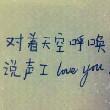 对着天空呼唤
说声I love you